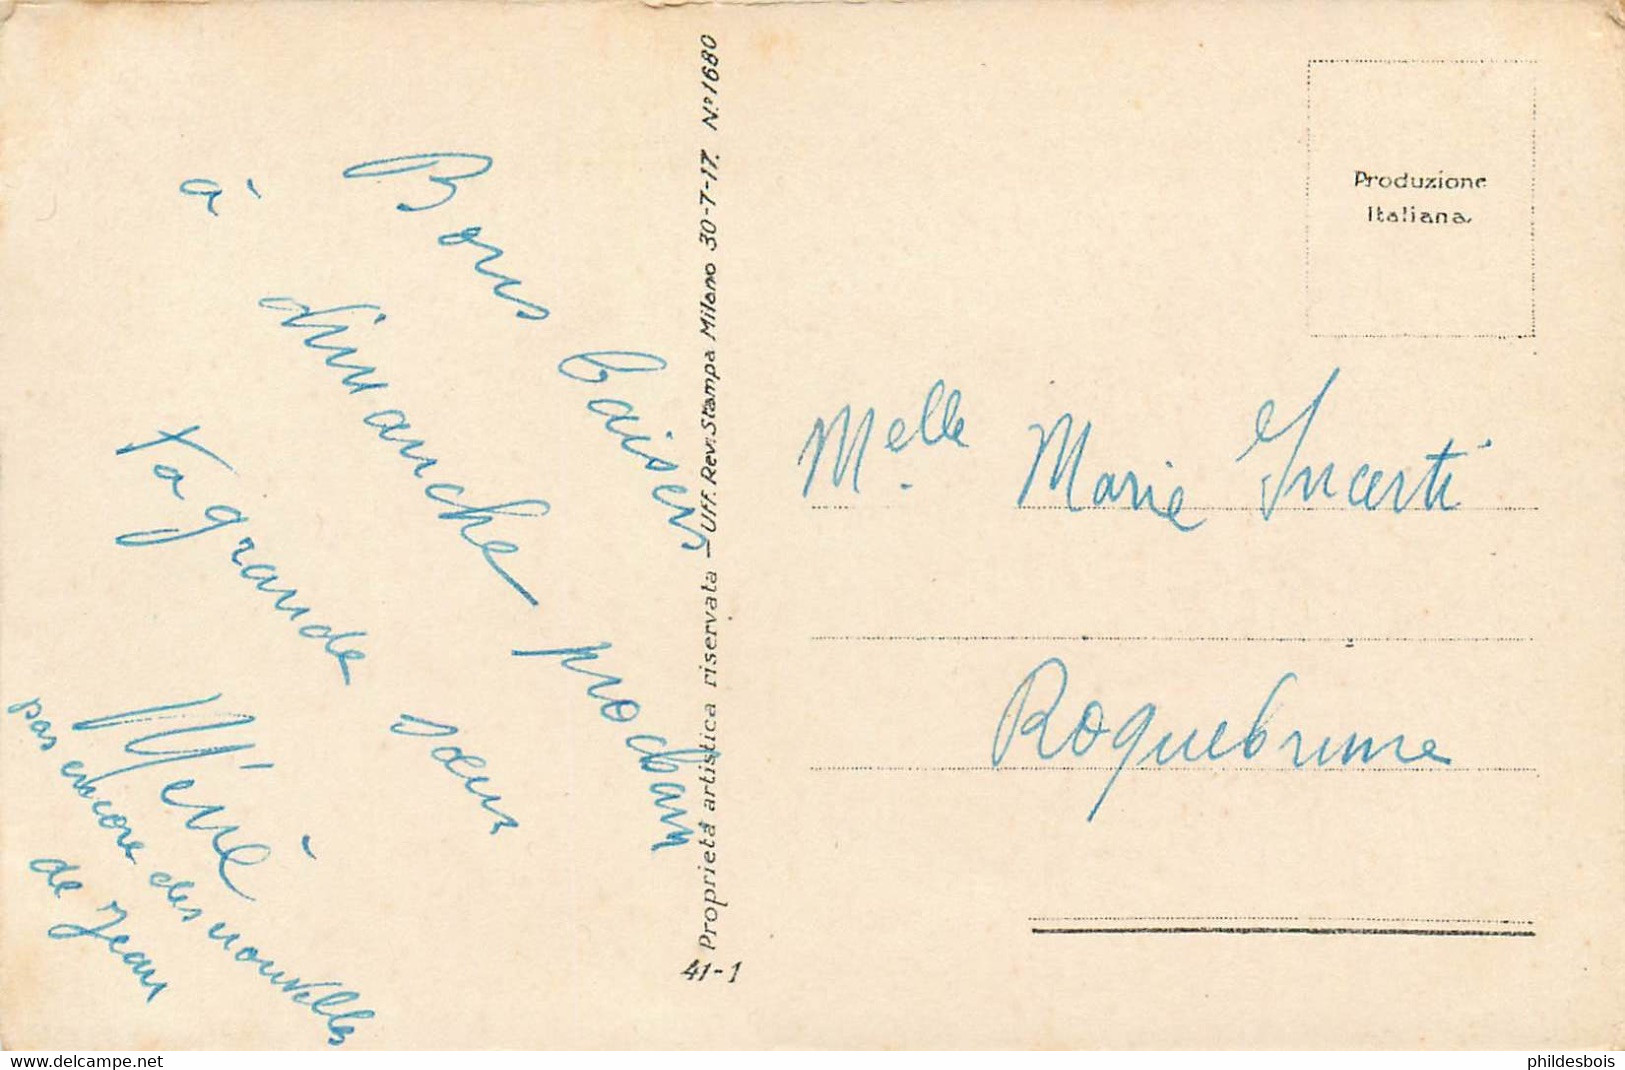 Bons baisers
à dimanche prochain
Ta grande soeur
Mémé
pas encore des nouvelles
de Jean
Proprietà artistica riservata - Uff. Rev. Stampa Milano 30-7-17. N.º 1680
41-1
Produzione
Italiana.
Melle. Marie Incerti
Roquebrune
www.delcampe.net
phildesbois